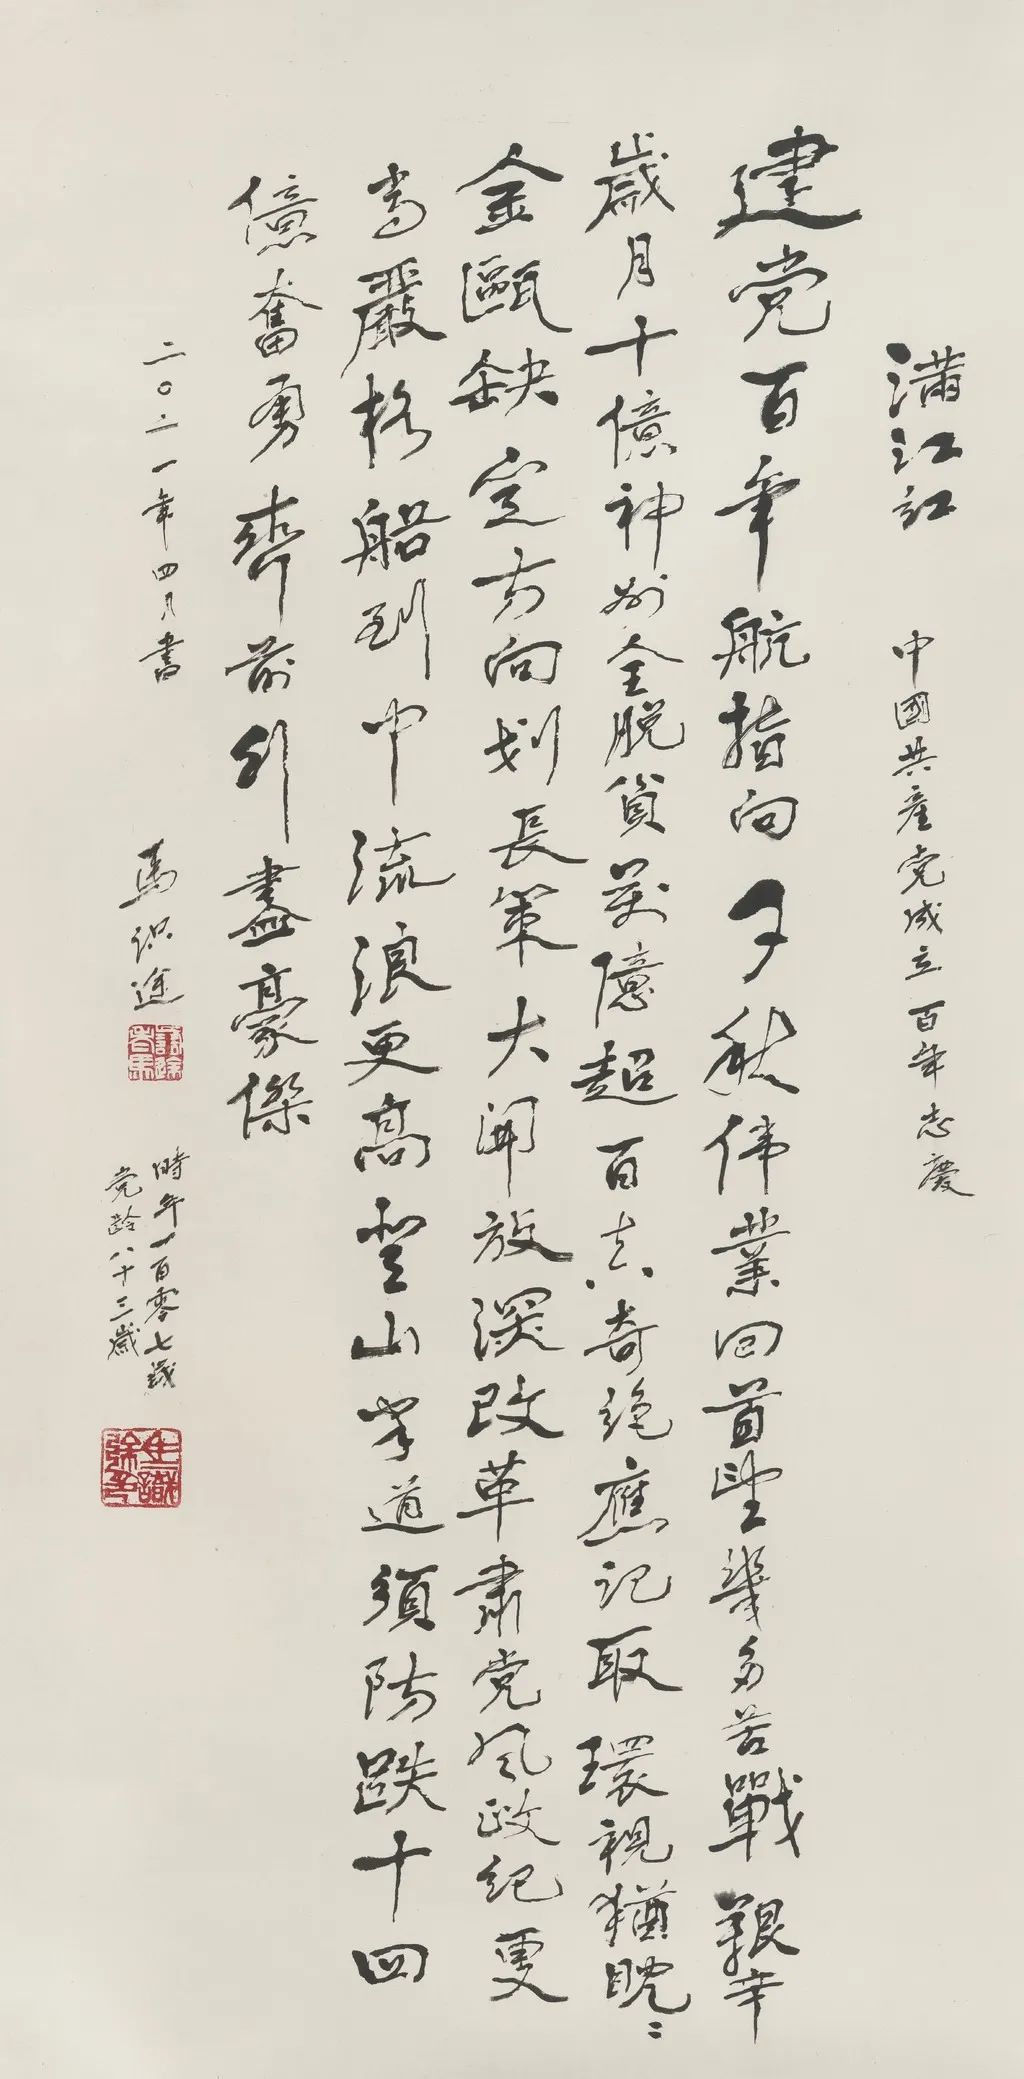 满江红 中國共産党成立百年志慶
建党百年航指向千秋伟業回首望幾多苦戰艱辛
歲月十億神州全脱貧萬億超百真奇绝應記取環視猶眈〻
金甌缺定方向划長策大開放深改革肅党风政纪更
当嚴格船到中流浪更高登山半道須防跌十四
億奮勇齊前列盡豪傑
二〇二一年四月書 馬识途
時年一百零七歲
党龄八十三歲